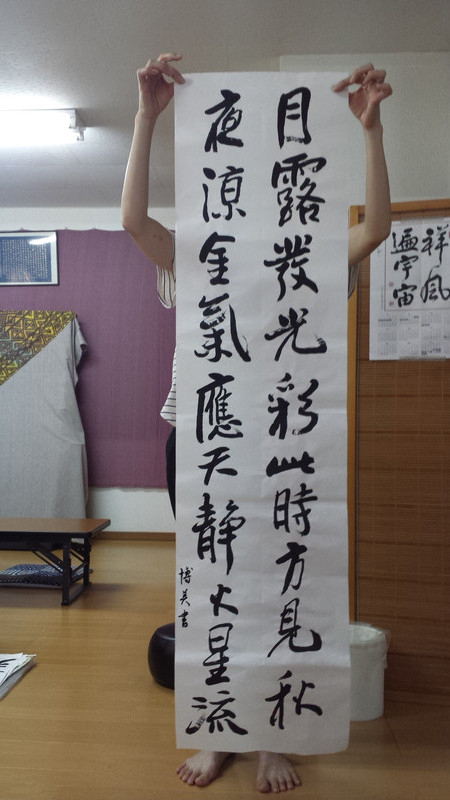 月露發光彩此時方見秋
夜涼金氣應天静火星流
博美書
祥風
遍宇宙